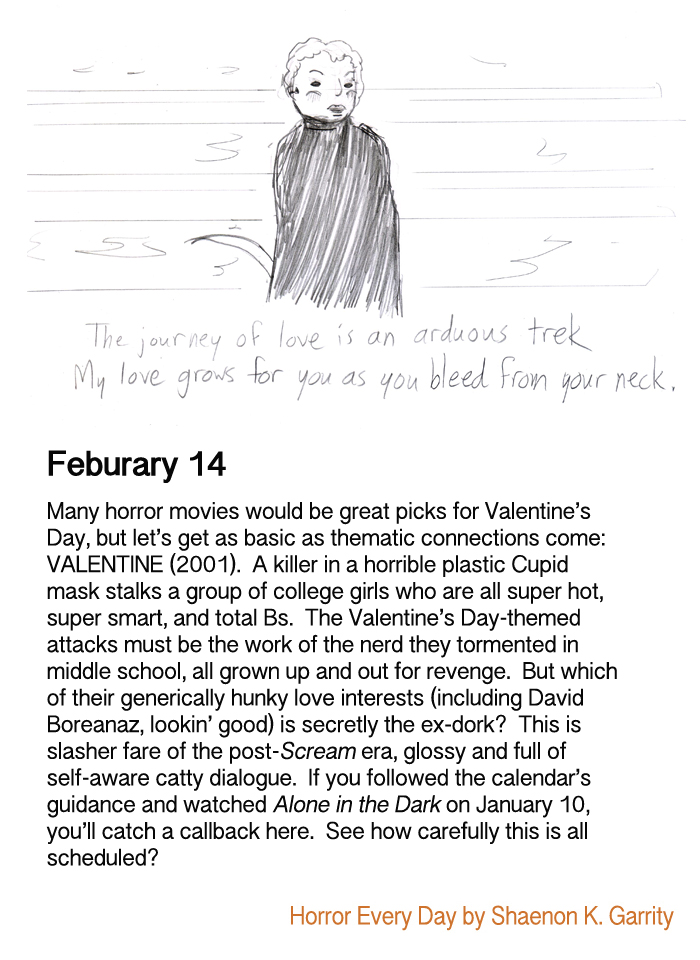 The journey of love is an arduous trek
My love grows for you as you bleed from your neck.
Feburary 14
Many horror movies would be great picks for Valentine's
Day, but let's get as basic as thematic connections come:
VALENTINE (2001).  A killer in a horrible plastic Cupid
mask stalks a group of college girls who are all super hot,
super smart, and total Bs.  The Valentine's Day-themed
attacks must be the work of the nerd they tormented in
middle school, all grown up and out for revenge.  But which
of their generically hunky love interests (including David
Boreanaz, lookin' good) is secretly the ex-dork?  This is
slasher fare of the post-Scream era, glossy and full of
self-aware catty dialogue.  If you followed the calendar's
guidance and watched Alone in the Dark on January 10,
you'll catch a callback here.  See how carefully this is all
scheduled?
Horror Every Day by Shaenon K. Garrity